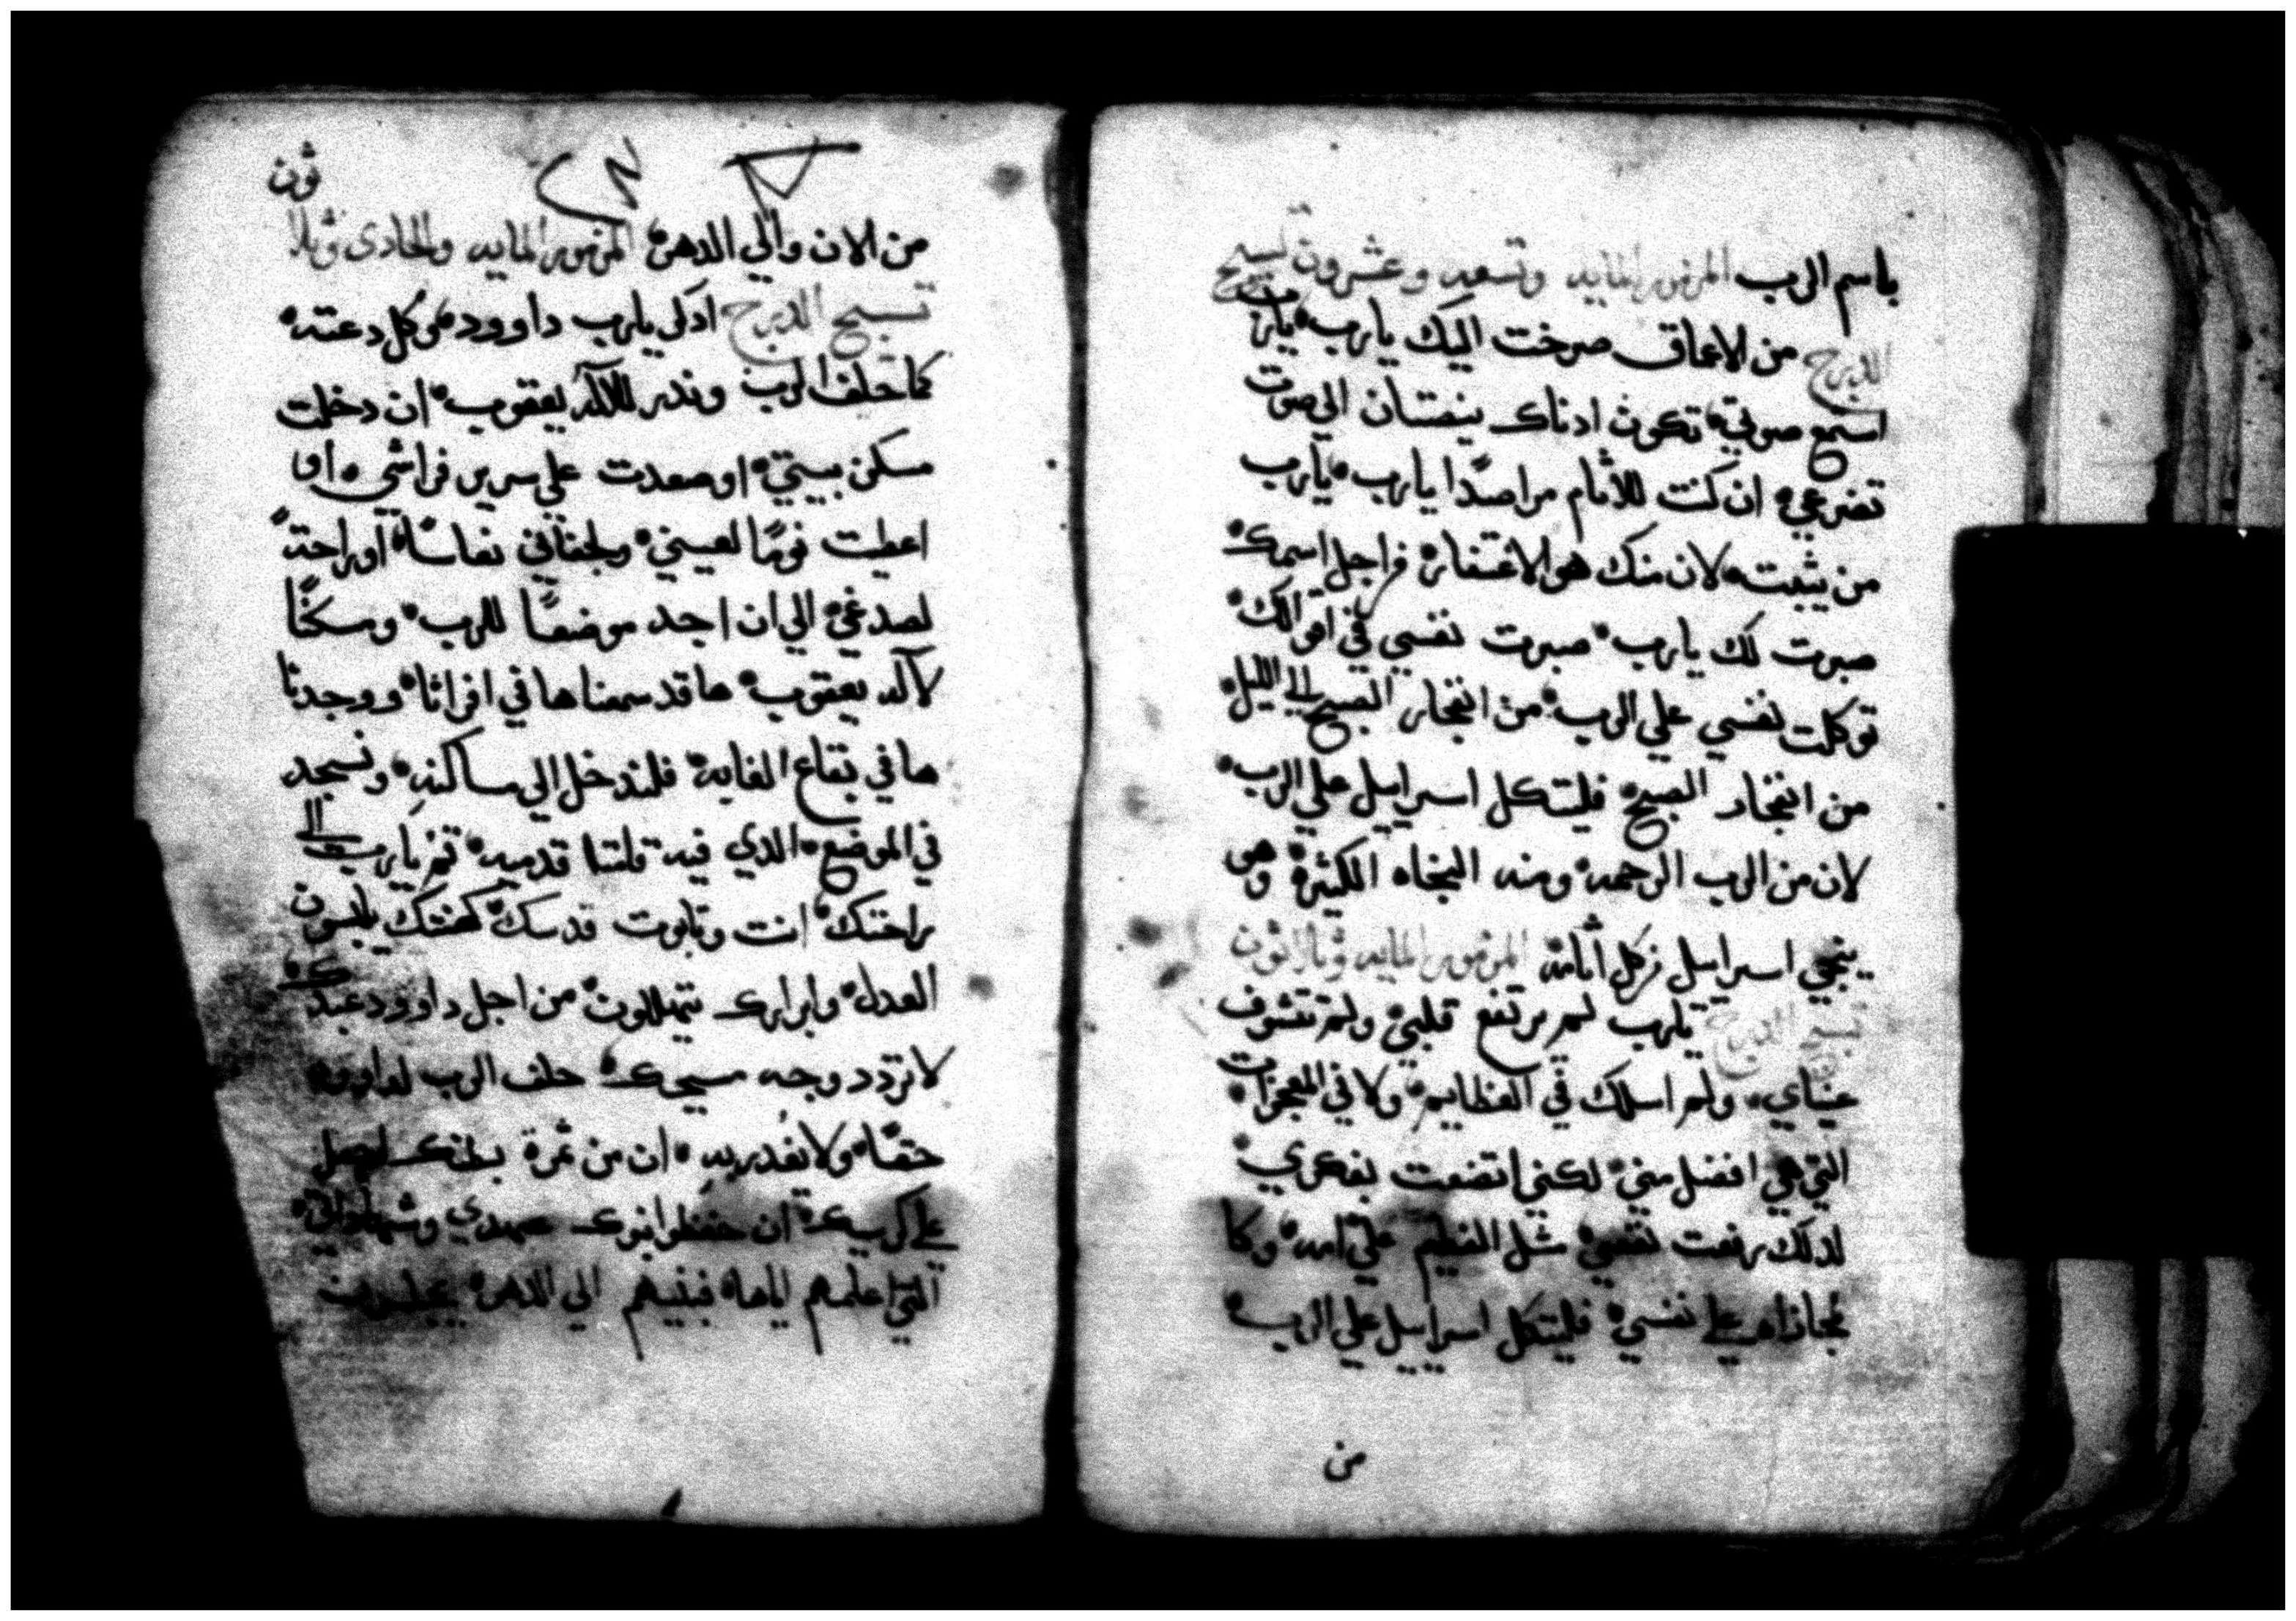 باسم الرب المزمور المايه وتسعه وعشرون تسبيح
الدرج من الاعماق صرخت اليك يارب يارب
استمع صوتي تكون ادناك ينصتان الى صوت
تضرعي ان كنت للاثام مراصدًا يارب يارب
من يثبت لان منك هو الاغتفار فراجل اسمك
صبرت لك يارب صبرت نفسي في اقوالك
توكلت نفسي علي الرب من انفجار الصبح الي الليل
من انفجار الصبح فليتكل اسراييل علي الرب
لان من الرب الرحمه ومنه النجاه الكثيرة وهو
ينجي اسراييل من كل اثامه المزمور المايه وثلاثون
تسبيح الدرج يارب لم يرتفع قلبي ولم تتشوف
عيناي ولم اسلك في العظايم ولا في المعجزات
التي هي افضل مني لكني اتضعت بفكري
لدلك رفعت نفسي مثل الفطيم علي امه وكا
لمجازاه علي نفسي فليتكل اسراييل علي الرب
من
ثون
من الان والي الدهر المزمور المايه والحادى وثلا
تسبيح الدرج ادكر يارب داوود وكل دعته
كما حلف الرب وندر للاله يعقوب ان دخلت
مسكن بيتي او صعدت علي سرير فراشي او
اعطيت نومًا لعيني ولجفاني نعاسًا او راحةً
لصدغي الي ان اجد موضعًا للرب ومسكنًا
لاله يعقوب ها قد سمعناها في افراثا ووجدنا
ها في بقاع الغابه فلندخل الي مساكنه ونسجد
في الموضع الدي فيه قامتا قدميه قم يارب الي
راحتك انت وتابوت قدسك كهنتك يلبسون
العدل وابرارك يتهللون من اجل داوود عبدك
لا تردد وجه مسيحك حلف الرب لداوود
حقًا ولا يغدر به ان من ثمرة بطنك اجعل
علي كرسيك ان حفظوا بنوك عهدي وشهاداتي
التي اعلمهم اياها فبنيهم الي الدهر يجلسون